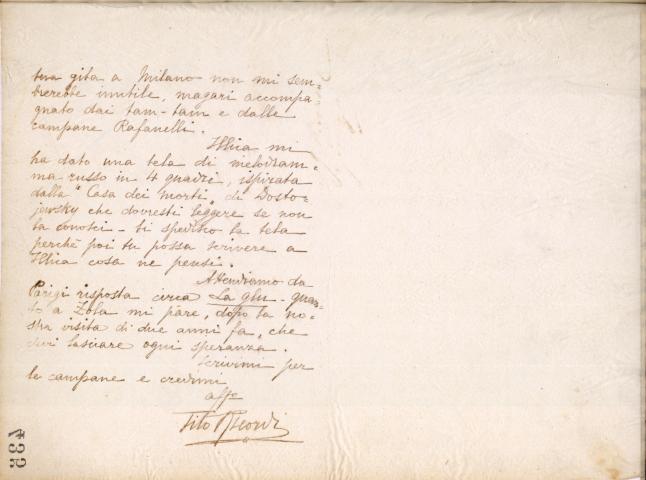 tua gita a Milano non mi sem=
brerebbe inutile, magari accompa=
gnato dai tam-tam e dalle
campane Rafanelli.
Illica mi
ha dato una tela di melodram=
ma russo in 4 quadri, ispirata
dalla "Casa dei morti" di Dosto=
jewsky che dovresti leggere se non
la conosci - ti spedisco la tela
perchè poi tu possa scrivere a
Illica cosa ne pensi.
Attendiamo da
Parigi risposta circa La glu - quan=
to a Zola mi pare, dopo la no=
stra visita di due anni fa, che
devi lasciare ogni speranza.
Scrivimi per
le campane e credimi
affo
Tito Ricordi
432